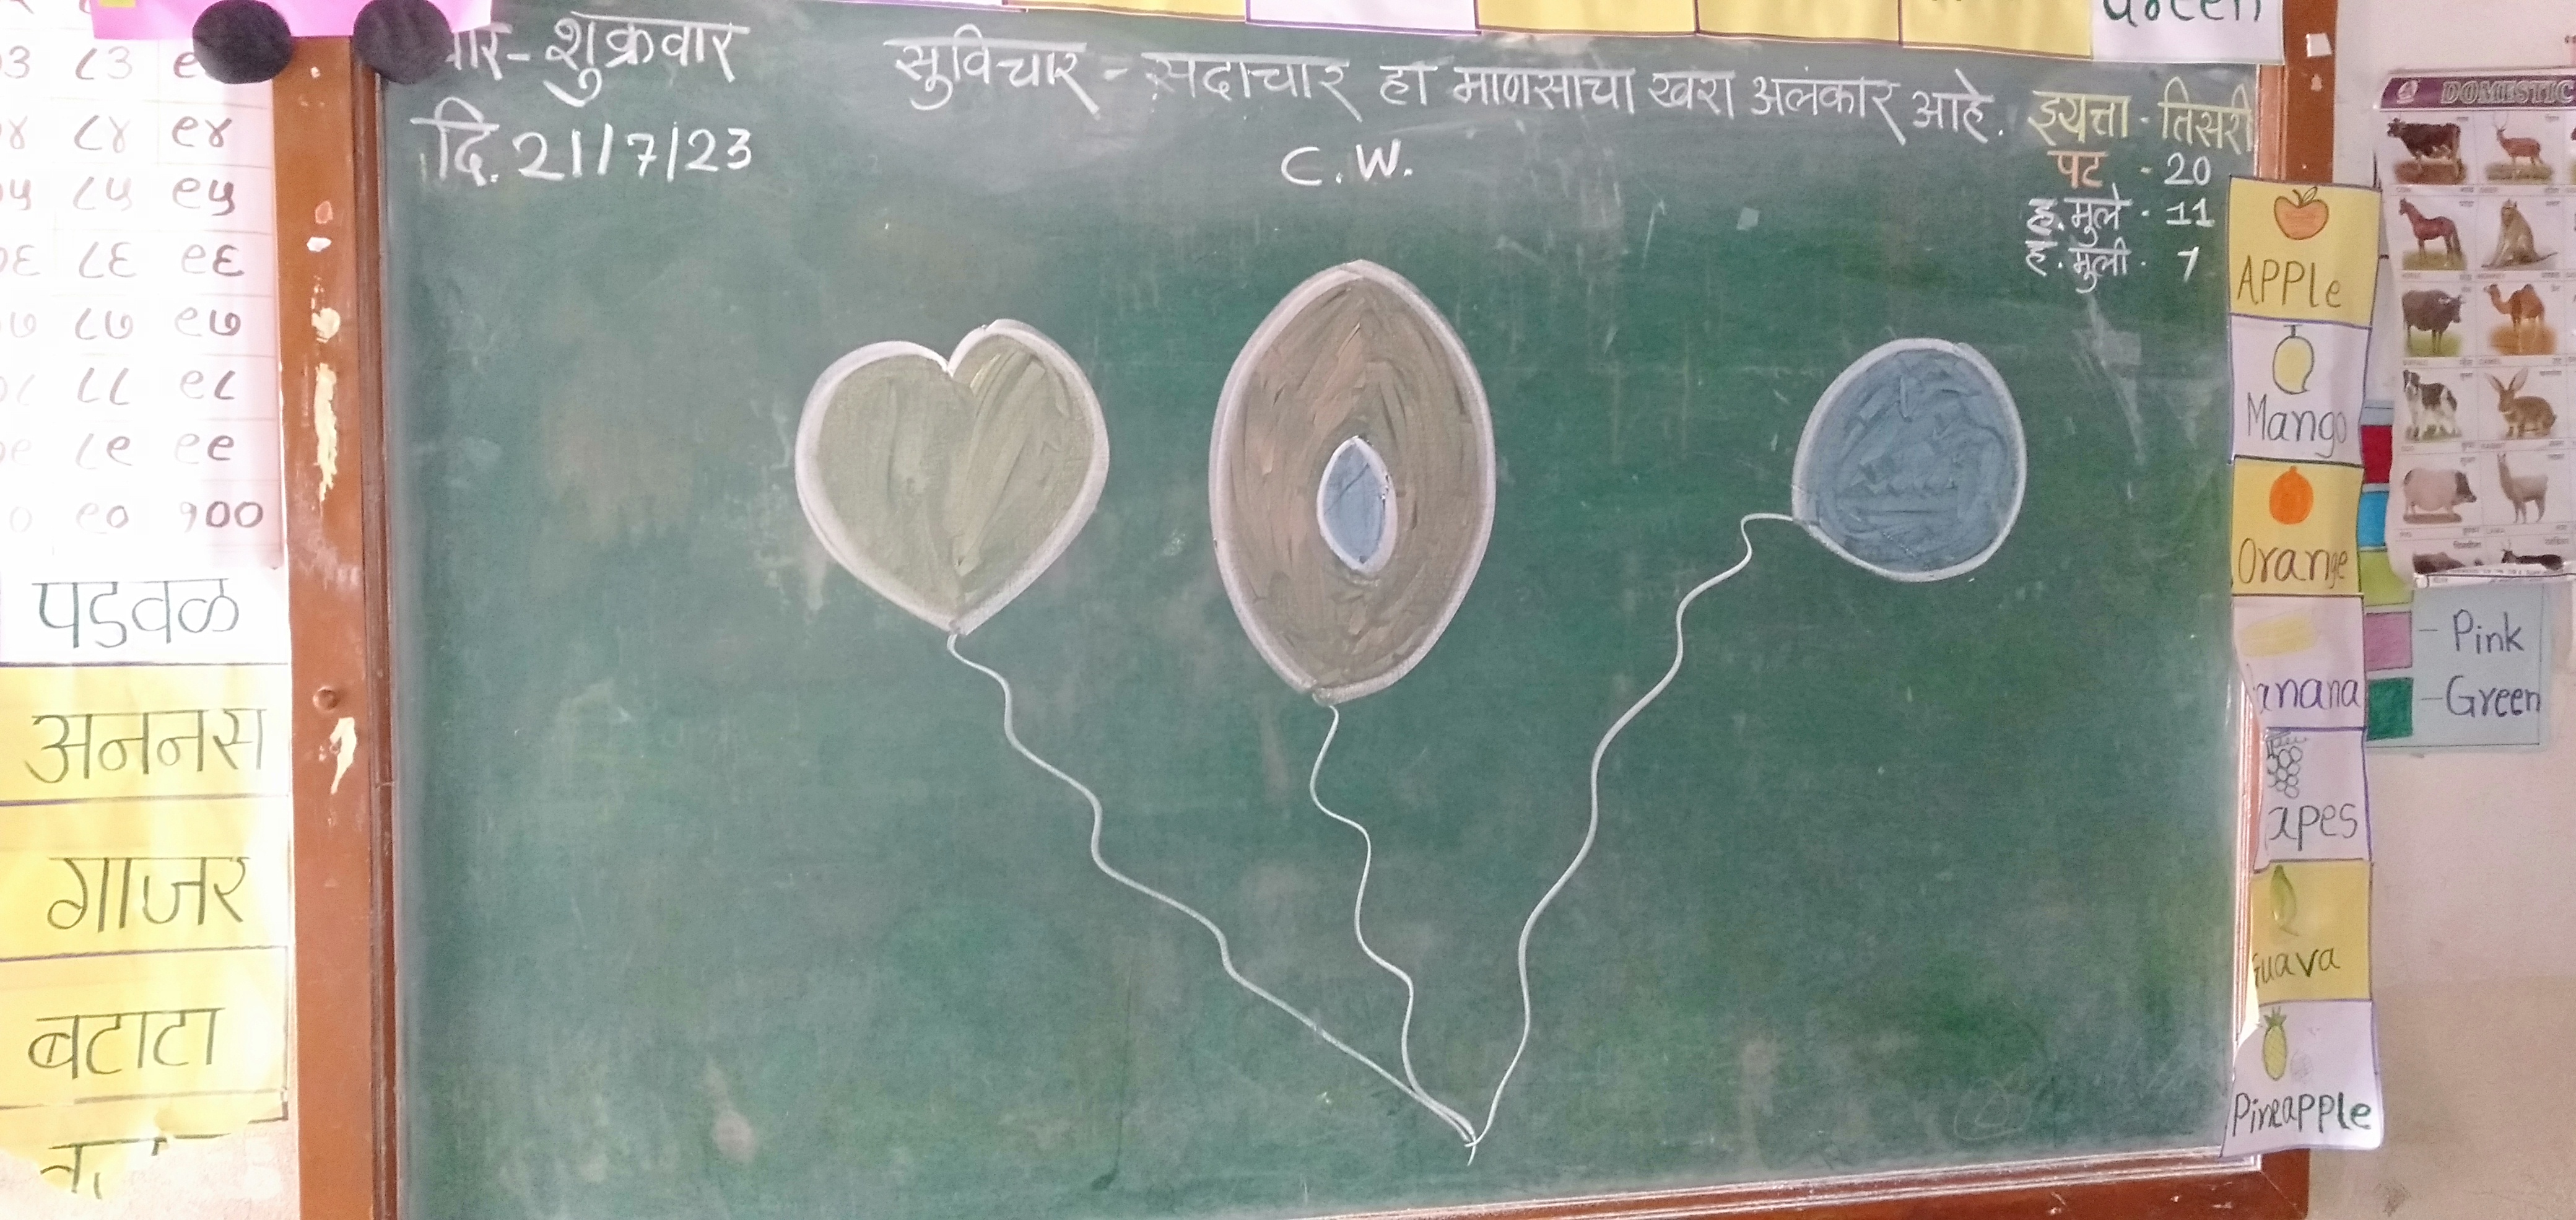 वार - शुक्रवार
दि. 21/7/23
सुविचार - सदाचार हा माणसाचा खरा अलंकार आहे.
C.W.
इयत्ता - तिसरी
पट - 20
ह. मुले - 11
ह. मुली - 7
३ ८३
४ ८४ ९४
५ ८५ ९५
६ ८६ ९६
७ ८७ ९७
८ ८८ ९८
९ ८९ ९९
० ९० १००
पडवळ
अननस
गाजर
बटाटा
APPLe
Mango
Orange
anana
apes
Guava
Pineapple
DOMESTIC
- Pink
- Green